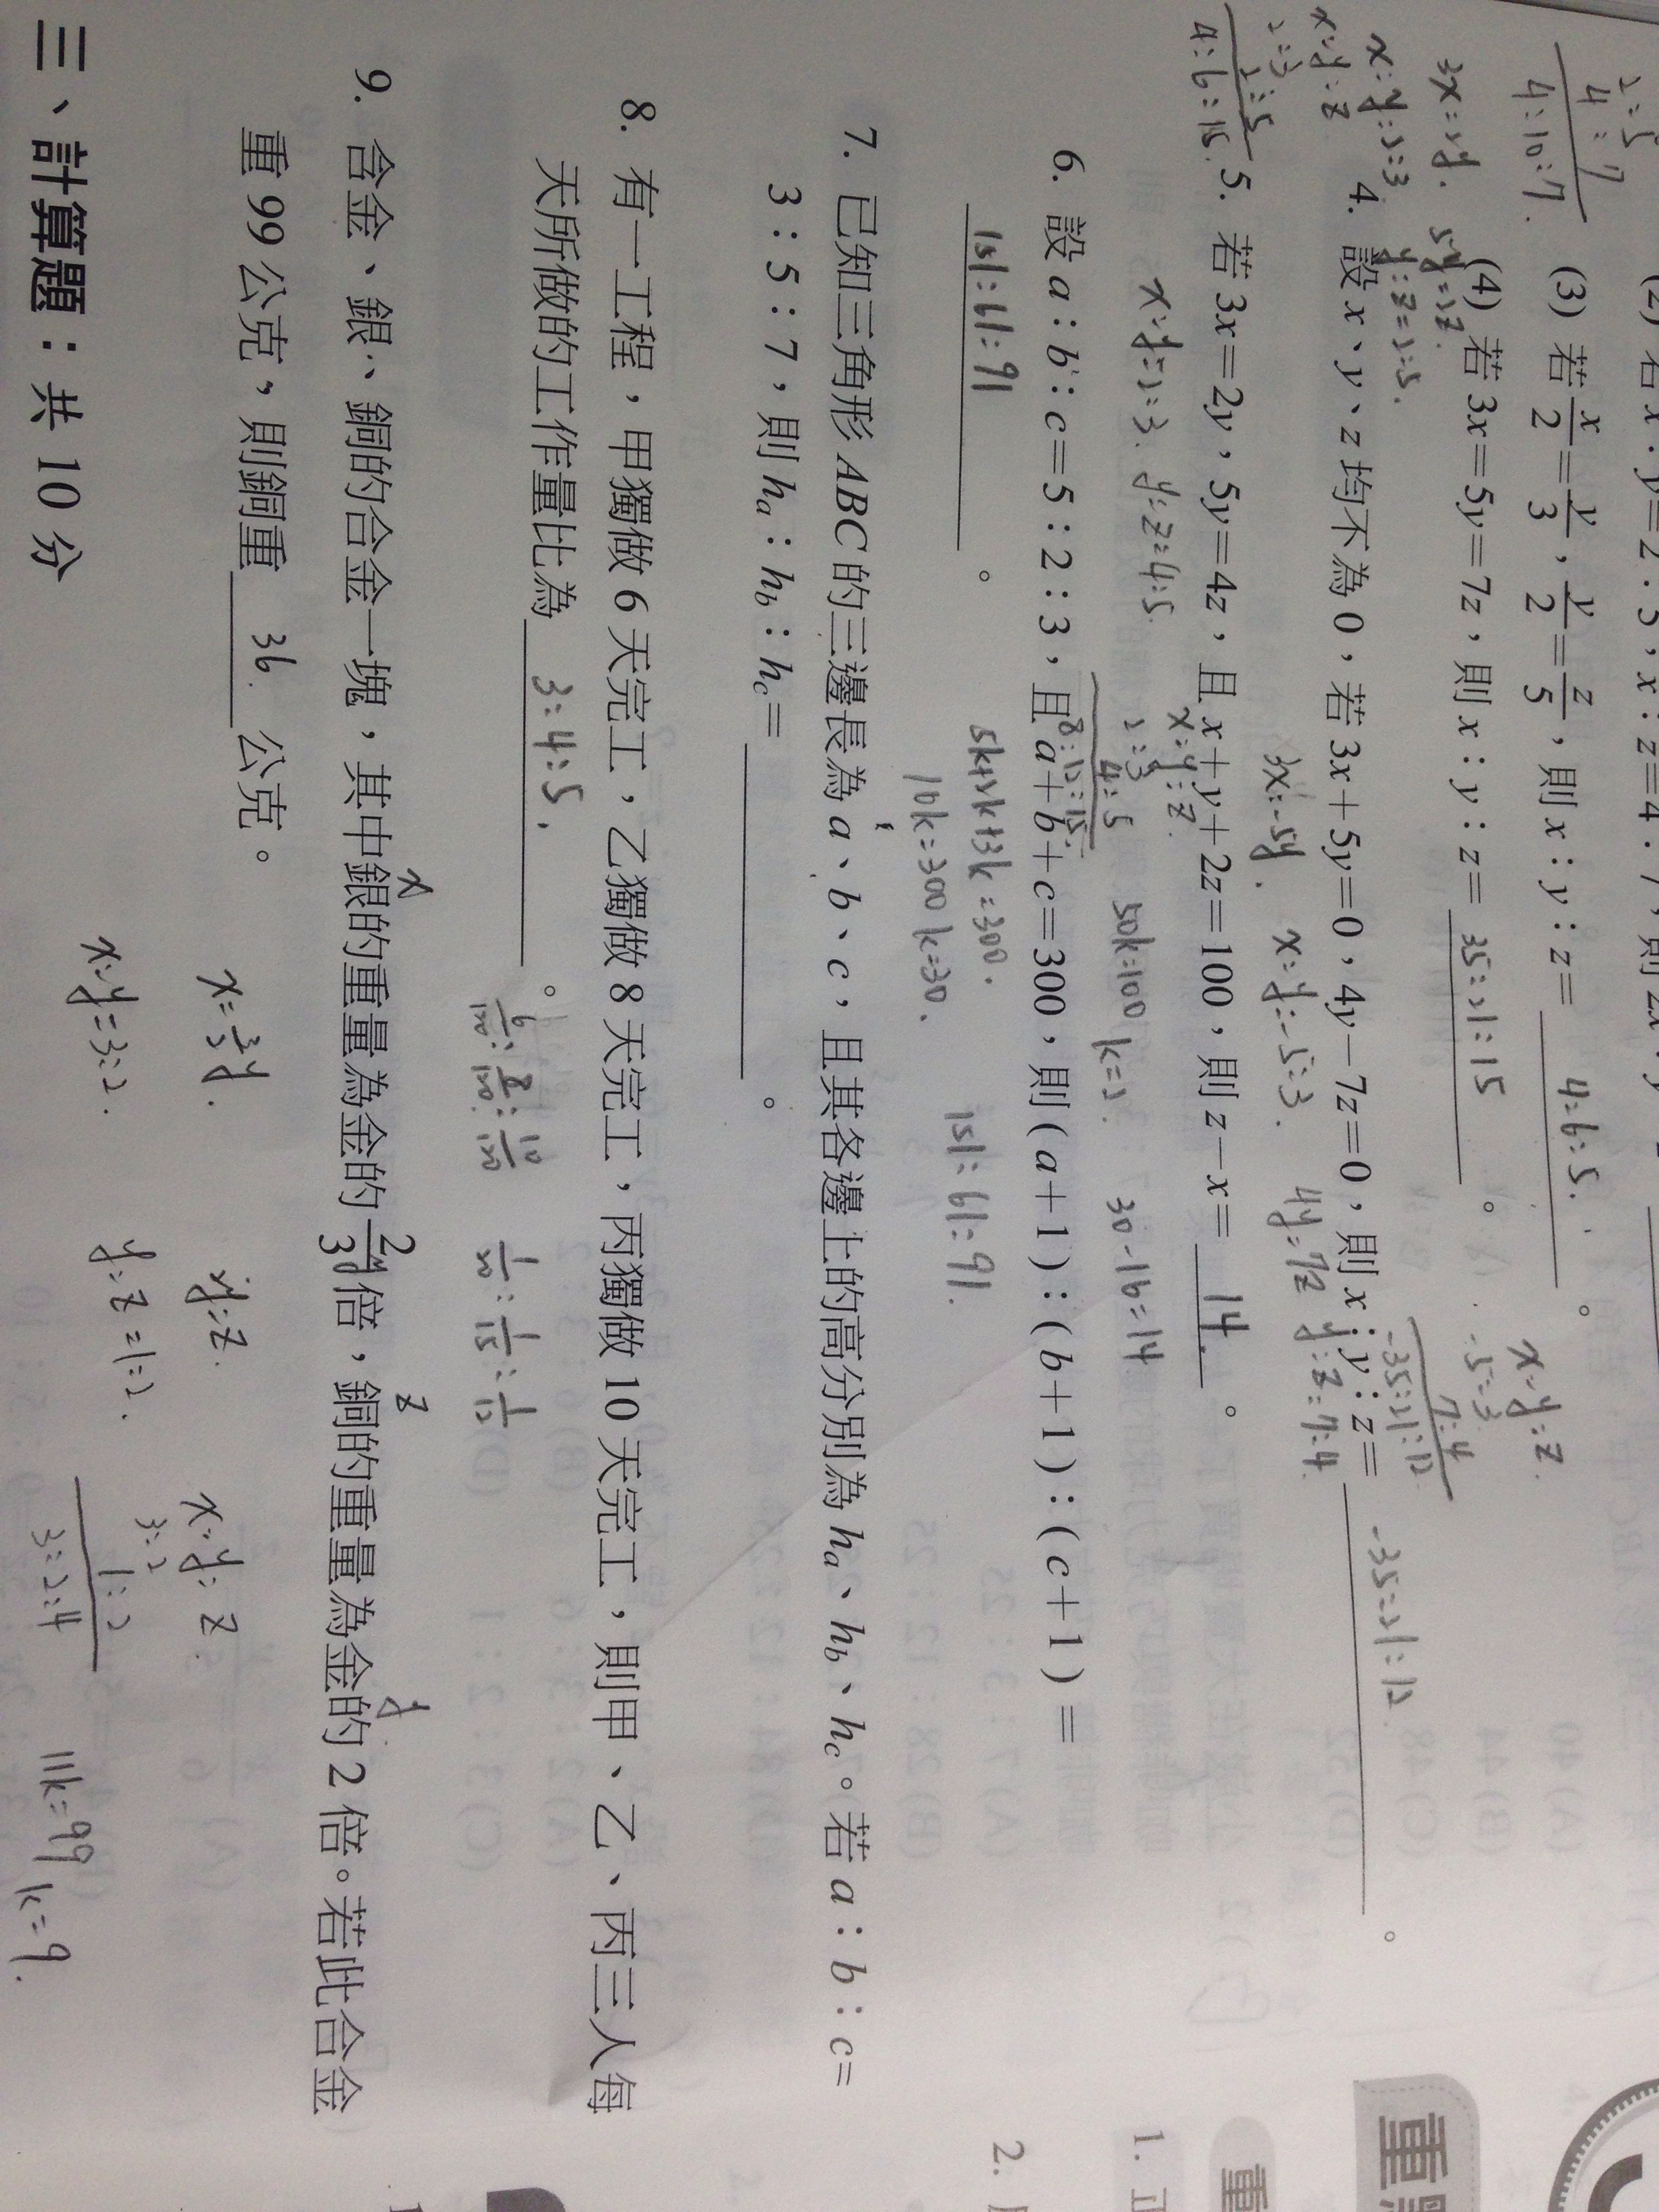 (3) 若 x/2 = y/3, y/2 = z/5, 則 x : y : z = 4:6:5.
2:5
4 : 7
4:10:7.
(4) 若 3x = 5y = 7z, 則 x : y : z = 35:21:15 。
3x=2y. 5y=2z.
x:y=2:3 y:z=2:5.
x:y:z
2:3
2:5
4:6:15.
x:y:z.
-5:3
7:4
-35:21:12
4. 設 x、y、z 均不為 0, 若 3x + 5y = 0, 4y − 7z = 0, 則 x : y : z = -35:21:12 。
3x=-5y. x:y=-5:3. 4y=7z y:z=7:4.
5. 若 3x = 2y, 5y = 4z, 且 x + y + 2z = 100, 則 z − x = 14. 。
x:y=2:3. y:z=4:5.
x:y:z.
2:3
4:5
8:12:15
50k=100 k=2. 30-16=14
6. 設 a : b : c = 5 : 2 : 3, 且 a + b + c = 300, 則 (a + 1) : (b + 1) : (c + 1) =
151:61:91 。
5k+2k+3k=300.
10k=300 k=30.
151:61:91.
7. 已知三角形 ABC 的三邊長為 a、b、c, 且其各邊上的高分別為 ha、hb、hc。若 a : b : c =
3 : 5 : 7, 則 ha : hb : hc = 。
8. 有一工程, 甲獨做 6 天完工, 乙獨做 8 天完工, 丙獨做 10 天完工, 則甲、乙、丙三人每
天所做的工作量比為 3:4:5. 。
6/120 : 8/120 : 10/120 1/20 : 1/15 : 1/12
9. 含金、銀、銅的合金一塊, 其中銀的重量為金的 2/3 倍, 銅的重量為金的 2 倍。若此合金
x z y
重 99 公克, 則銅重 36. 公克。
x=2/3y. y:z. x:y:z.
x:y=3:2. y:z=1:2.
3:2
1:2
3:2:4
11k=99 k=9.
三、計算題:共 10 分
重
1.
2.